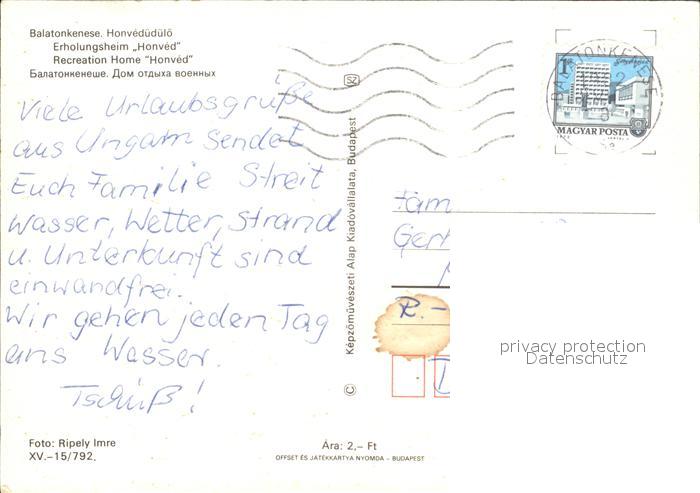 Balatonkenese. Honvédüdülő
Erholungsheim „Honvéd”
Recreation Home “Honvéd”
Балатонкенеше. Дом отдыха военных
Viele Urlaubsgrüße
aus Ungarn sendet
Euch Familie Streit
Wasser, Wetter, Strand
u. Unterkunft sind
einwandfrei.
Wir gehen jeden Tag
ans Wasser.
Tschüß!
Foto: Ripely Imre
XV.–15/792.
Ára: 2,– Ft
OFFSET ÉS JÁTÉKKÁRTYA NYOMDA – BUDAPEST
© Képzőművészeti Alap Kiadóvállalata, Budapest
SZ
MAGYAR POSTA
Fam
Gert
R.–
privacy protection
Datenschutz